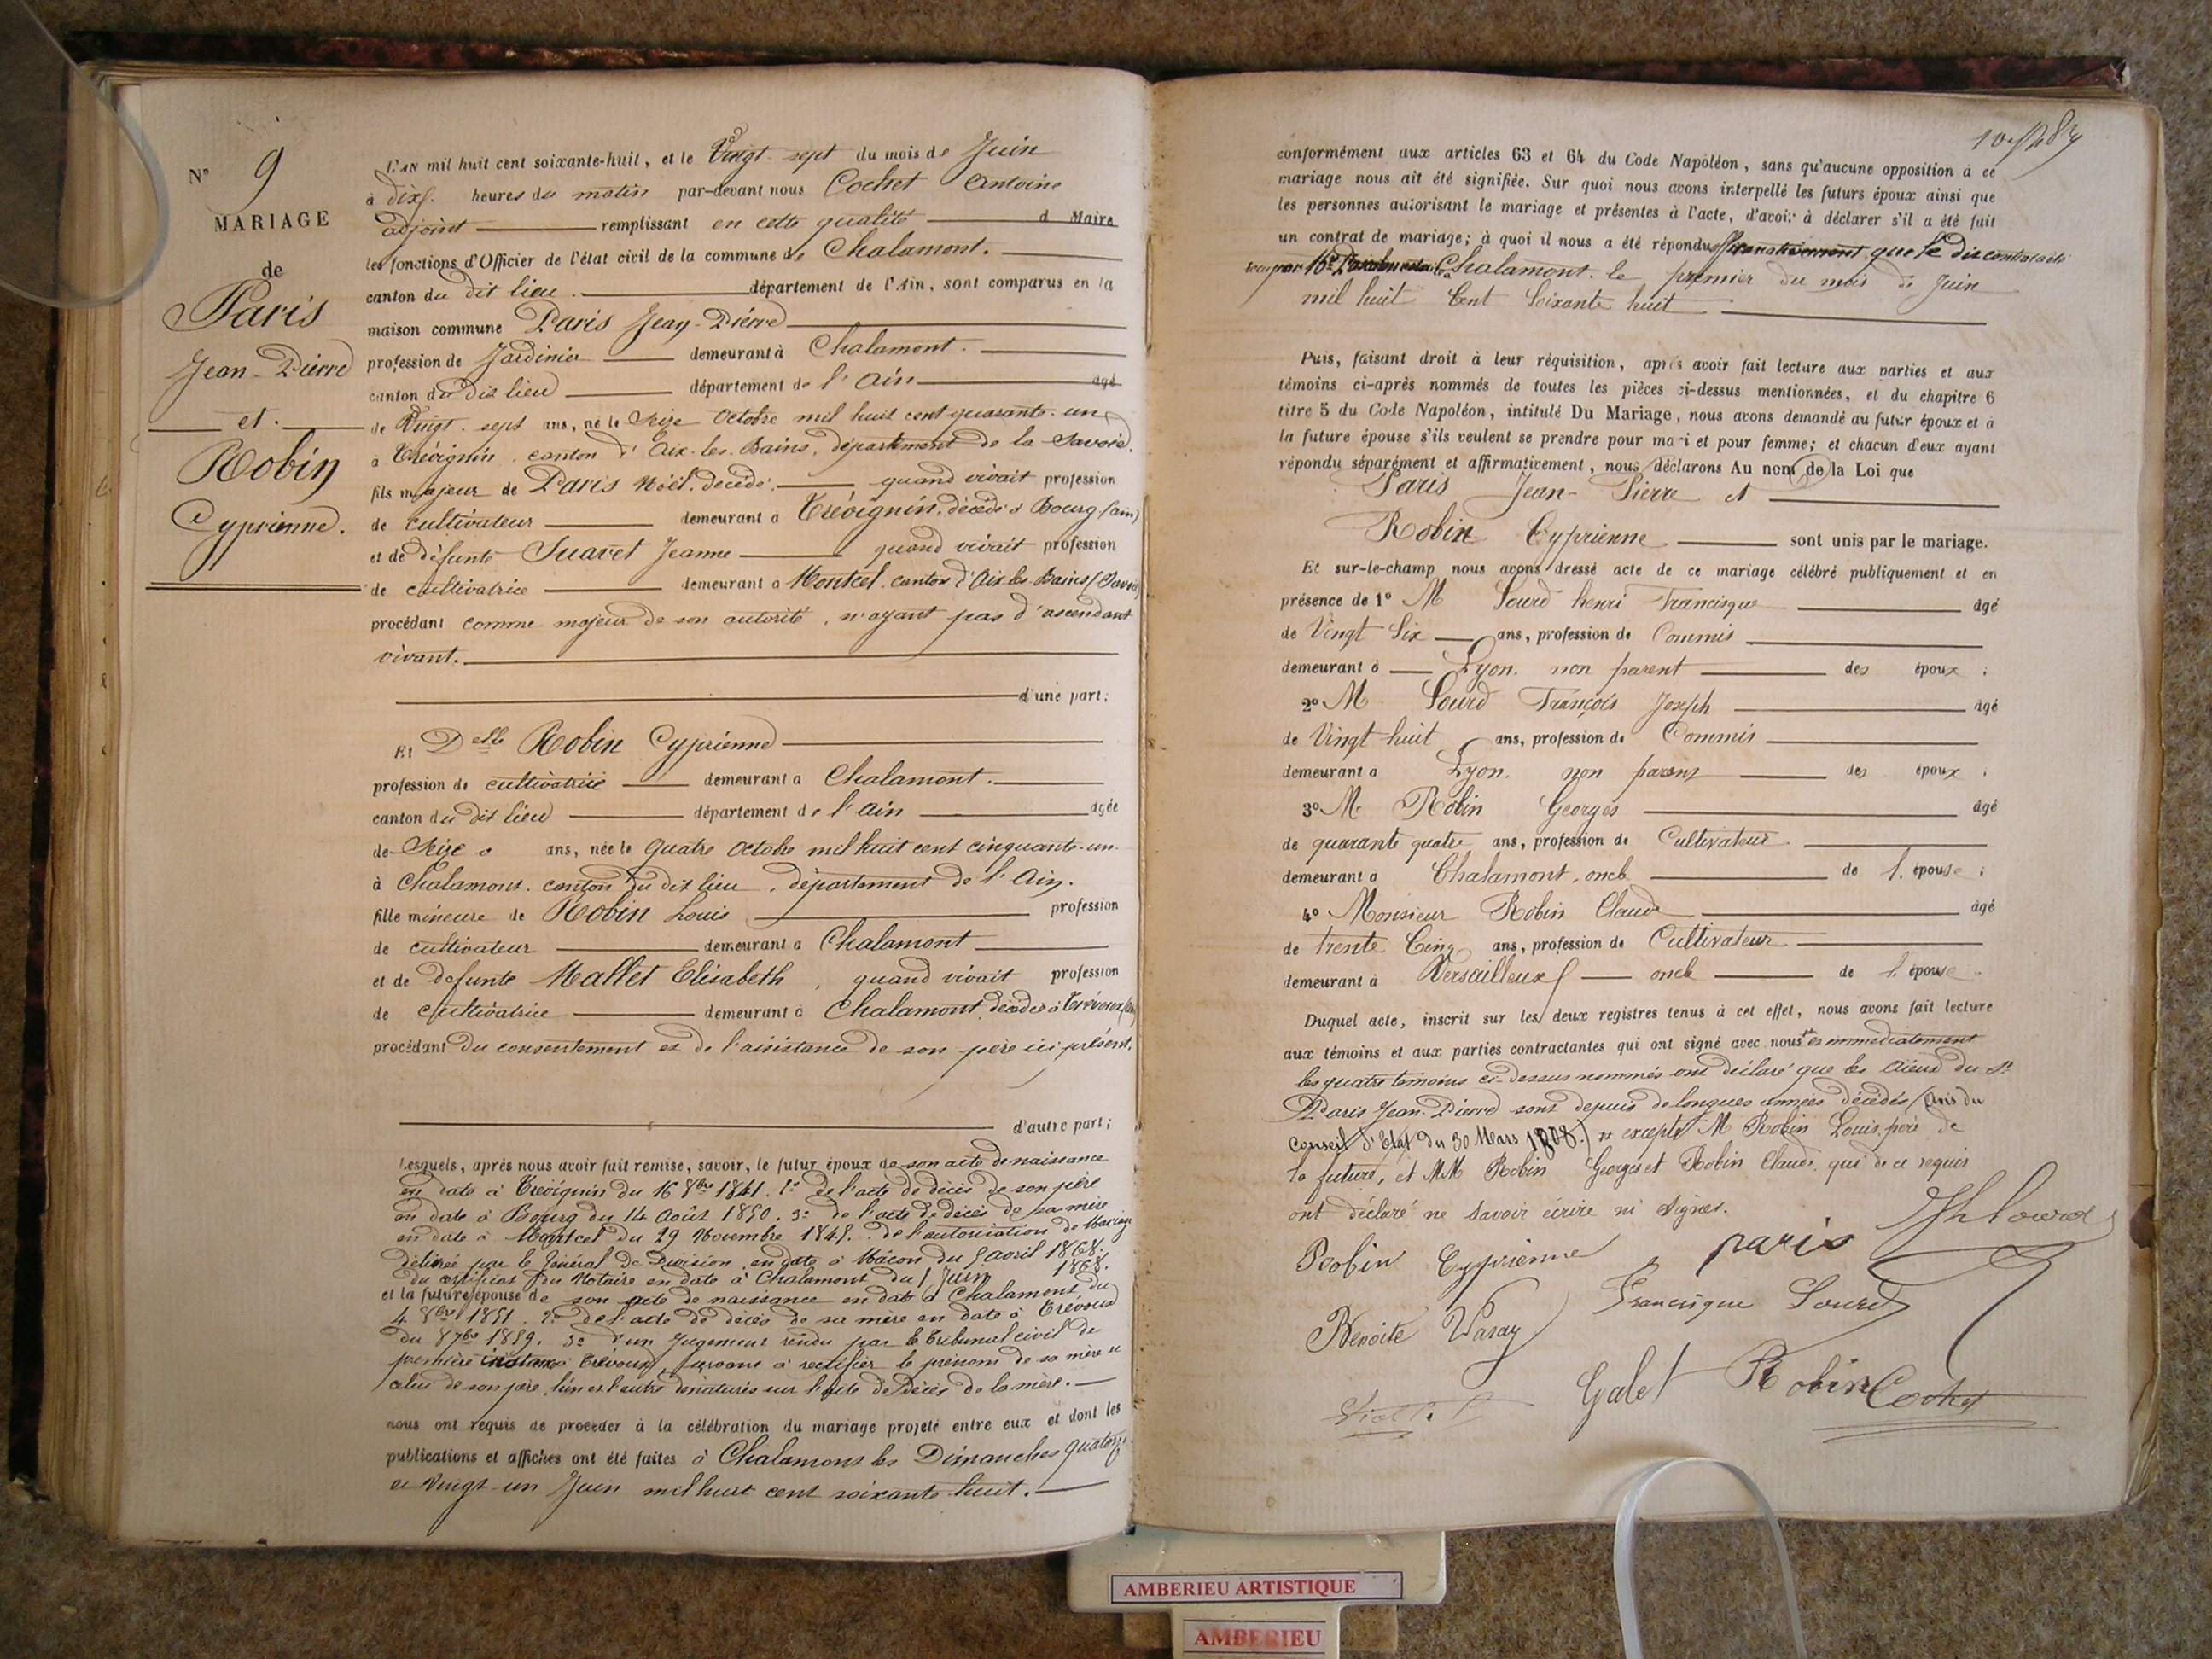 N° 9
MARIAGE
de
Paris
Jean-Pierre
et
Robin
Cyprienne.
L'AN mil huit cent soixante-huit, et le Vingt-sept du mois de Juin
à dix heures du matin par-devant nous Cochet Antoine
adjoint remplissant en cette qualité d Maire
les fonctions d'Officier de l'état civil de la commune de Chalamont.
canton du dit lieu. département de l'Ain, sont comparus en la
maison commune Paris Jean-Pierre
profession de Jardinier demeurant à Chalamont.
canton du dit lieu département de l'Ain âgé
de Vingt-sept ans, né le Seize Octobre mil huit cent quarante-un
à Trévignin, canton d'Aix-les-Bains, département de la Savoie.
fils majeur de Paris Noël, décédé, quand vivait profession
de cultivateur demeurant à Trévignin, décédé à Bourg (ain)
et de défunte Suavet Jeanne quand vivait profession
de cultivatrice demeurant à Montcel, canton d'Aix les Bains (Savoie)
procédant comme majeur de son autorité, n'ayant pas d'ascendant
vivant.
d'une part;
Et Delle Robin Cyprienne
profession de cultivatrice demeurant à Chalamont.
canton du dit lieu département de l'Ain âgée
de Seize ans, née le quatre Octobre mil huit cent cinquante-un
à Chalamont, canton du dit lieu, département de l'Ain.
fille mineure de Robin Louis profession
de cultivateur demeurant à Chalamont
et de defunte Mallet Elisabeth, quand vivait profession
de cultivatrice demeurant à Chalamont, décédée à Trévoux (ain)
procédant du consentement et de l'assistance de son père ici présent.
d'autre part;
Lesquels, après nous avoir fait remise, savoir, le futur époux de son acte de naissance
en date à Trévignin du 16 8bre 1841. 2° de l'acte de décès de son père
en date à Bourg du 14 Août 1850. 3° de l'acte de décès de sa mère
en date à Montcel du 29 Novembre 184. de l'autorisation de Mariage
délivrée par le Général de Division, en date à Mâcon du 5 avril 1868.
du certificat du Notaire en date à Chalamont du 1 Juin 1868.
et la future épouse de son acte de naissance en date à Chalamont du
4 8bre 1851. 2° de l'acte de décès de sa mère en date à Trévoux
du 8 7bre 1859. 3° d'un Jugement rendu par le Tribunal civil de
première instance à Trévoux, servant à rectifier le prénom de sa mère et
celui de son père, l'un et l'autre dénaturés sur l'acte de décès de la mère.
nous ont requis de procéder à la célébration du mariage projeté entre eux et dont les
publications et affiches ont été faites à Chalamont les Dimanches quatorze
et Vingt-un Juin mil huit cent soixante huit.
conformément aux articles 63 et 64 du Code Napoléon, sans qu'aucune opposition à ce
mariage nous ait été signifiée. Sur quoi nous avons interpellé les futurs époux ainsi que
les personnes autorisant le mariage et présentes à l'acte, d'avoir à déclarer s'il a été fait
un contrat de mariage; à quoi il nous a été répondu affirmativement que le dit contrat a été
Chalamont. le premier du mois de Juin
mil huit Cent Soixante huit
Puis, faisant droit à leur réquisition, après avoir fait lecture aux parties et aux
témoins ci-après nommés de toutes les pièces ci-dessus mentionnées, et du chapitre 6
titre 5 du Code Napoléon, intitulé Du Mariage, nous avons demandé au futur époux et à
la future épouse s'ils veulent se prendre pour mari et pour femme; et chacun d'eux ayant
répondu séparément et affirmativement, nous déclarons Au nom de la Loi que
Paris Jean-Pierre et
Robin Cyprienne sont unis par le mariage.
Et sur-le-champ nous avons dressé acte de ce mariage célébré publiquement et en
présence de 1° M Sourd henri Francisque âgé
de Vingt Six ans, profession de Commis
demeurant à Lyon. non parent des époux;
2° M Sourd François Joseph âgé
de Vingt huit ans, profession de Commis
demeurant à Lyon. non parent des époux;
3° M. Robin Georges âgé
de quarante quatre ans, profession de Cultivateur
demeurant à Chalamont, oncle de l'épouse;
4° Monsieur Robin Claude âgé
de trente Cinq ans, profession de Cultivateur
demeurant à Versailleux oncle de l'épouse.
Duquel acte, inscrit sur les deux registres tenus à cet effet, nous avons fait lecture
aux témoins et aux parties contractantes qui ont signé avec nous et immédiatement
les quatre témoins ci-dessus nommés ont déclaré que les aïeux du Sr
Paris Jean-Pierre sont depuis de longues années décédés (avis du
Conseil d'Etat du 30 Mars 1808.) excepté M Robin Louis, père de
la future, et MM Robin Georges et Robin Claude, qui de ce requis
ont déclaré ne Savoir écrire ni signer.
Robin Cyprienne paris
Benoite Francisque Sourd
Galet Robin Cochet
AMBERIEU ARTISTIQUE
AMBERIEU